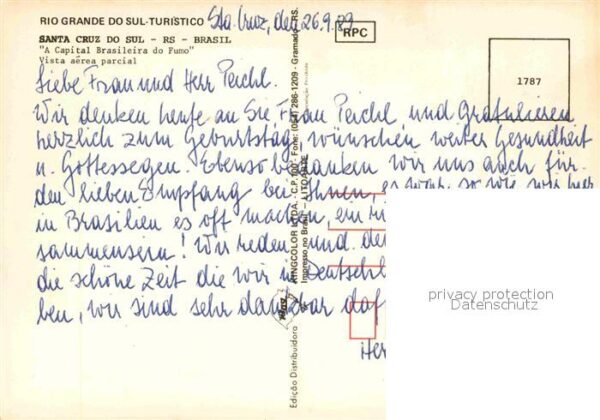 RIO GRANDE DO SUL-TURÍSTICO
Sta. Cruz, den 26.9.89
SANTA CRUZ DO SUL - RS - BRASIL
"A Capital Brasileira do Fumo"
Vista aérea parcial
RPC
1787
Liebe Frau und Herr Peichl.
Wir denken heute an Sie, Frau Peichl und gratulieren
herzlich zum Geburtstag, wünschen weiter Gesundheit
u. Gottessegen. Ebenso bedanken wir uns auch für
den lieben Empfang bei Ihnen, es war so wie wir hier
in Brasilien es oft machen, ein
sammensein! Wir reden und
die schöne Zeit die wir in Deutschl
ben, wir sind sehr dankbar daf
Her
Edição Distribuidora
KINGCOLOR LTDA. - C.P. 100 - Fone: (054) 286-1209 - Gramado - RS.
Impresso no Brasil - LITOARTE
privacy protection
Datenschutz